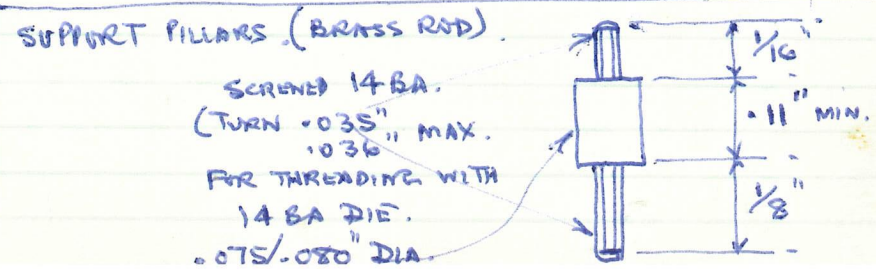 SUPPORT PILLARS. (BRASS ROD).
SCREWED 14 BA.
(TURN .035"
.036" MAX.
FOR THREADING WITH
14 BA DIE.
.075/.080" DIA.
1/16"
.11" MIN.
1/8"